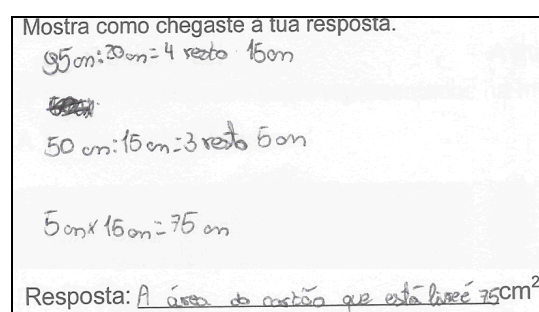 Mostra como chegaste à tua resposta.
95 cm : 20 cm = 4 resto 15 cm
50 cm : 15 cm = 3 resto 5 cm
5 cm x 15 cm = 75 cm
Resposta: A área do cartão que está livre é 75 cm²